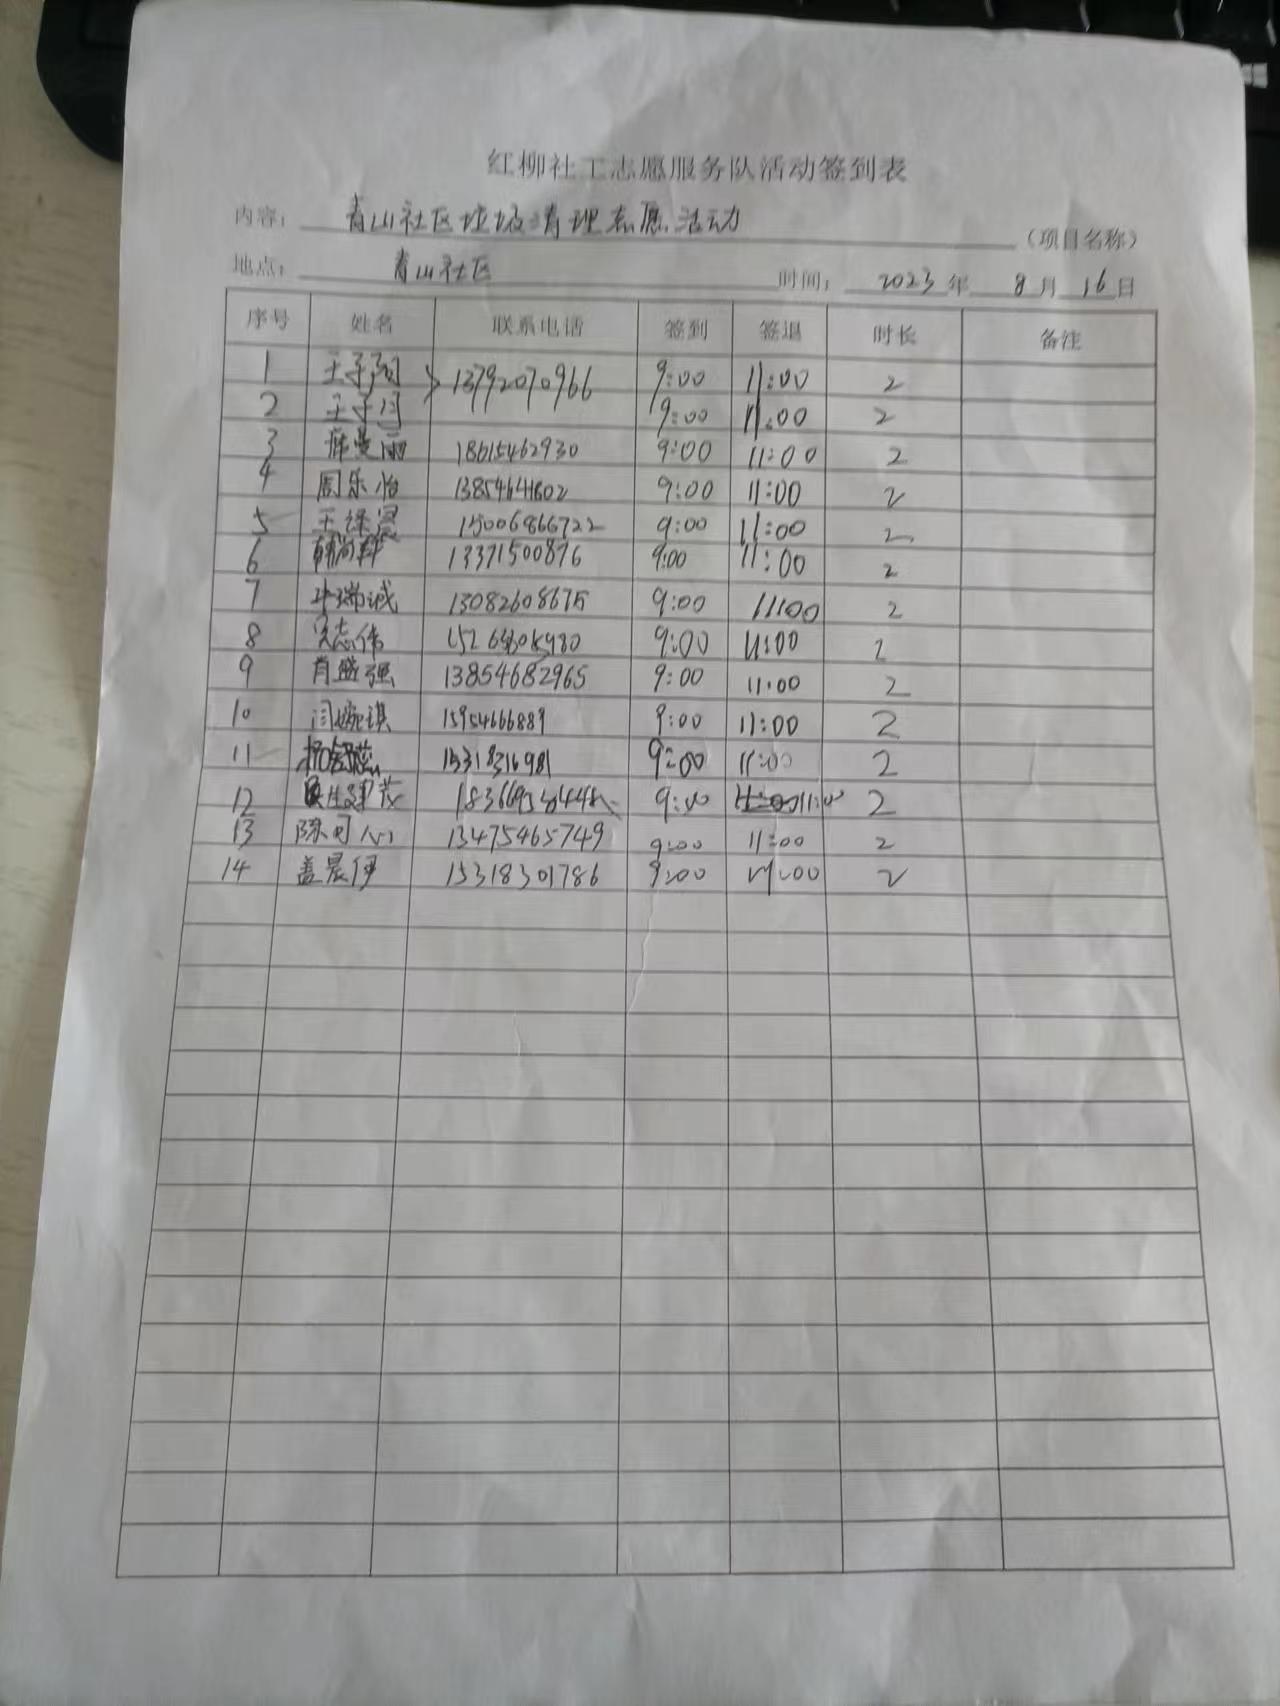 红柳社工志愿服务队活动签到表
内容：青山社区垃圾清理志愿活动（项目名称）
地点：青山社区 时间：2023年8月16日
序号 姓名 联系电话 签到 签退 时长 备注
1 王子 13792070966 9:00 11:00 2
2 王子 9:00 11:00 2
3 薛曼丽 18615462930 9:00 11:00 2
4 周乐怡 13854641602 9:00 11:00 2
5 王 15006866722 9:00 11:00 2
6 13371500876 9:00 11:00 2
7 瑞诚 13082608675 9:00 11:00 2
8 志伟 9:00 11:00 2
9 肖盛强 13854682965 9:00 11:00 2
10 闫婉琪 15954666889 9:00 11:00 2
11 杨舒蕊 15318316981 9:00 11:00 2
12 9:00 11:00 2
13 陈可心 13475465749 9:00 11:00 2
14 盖晨伊 15318301786 9:00 11:00 2